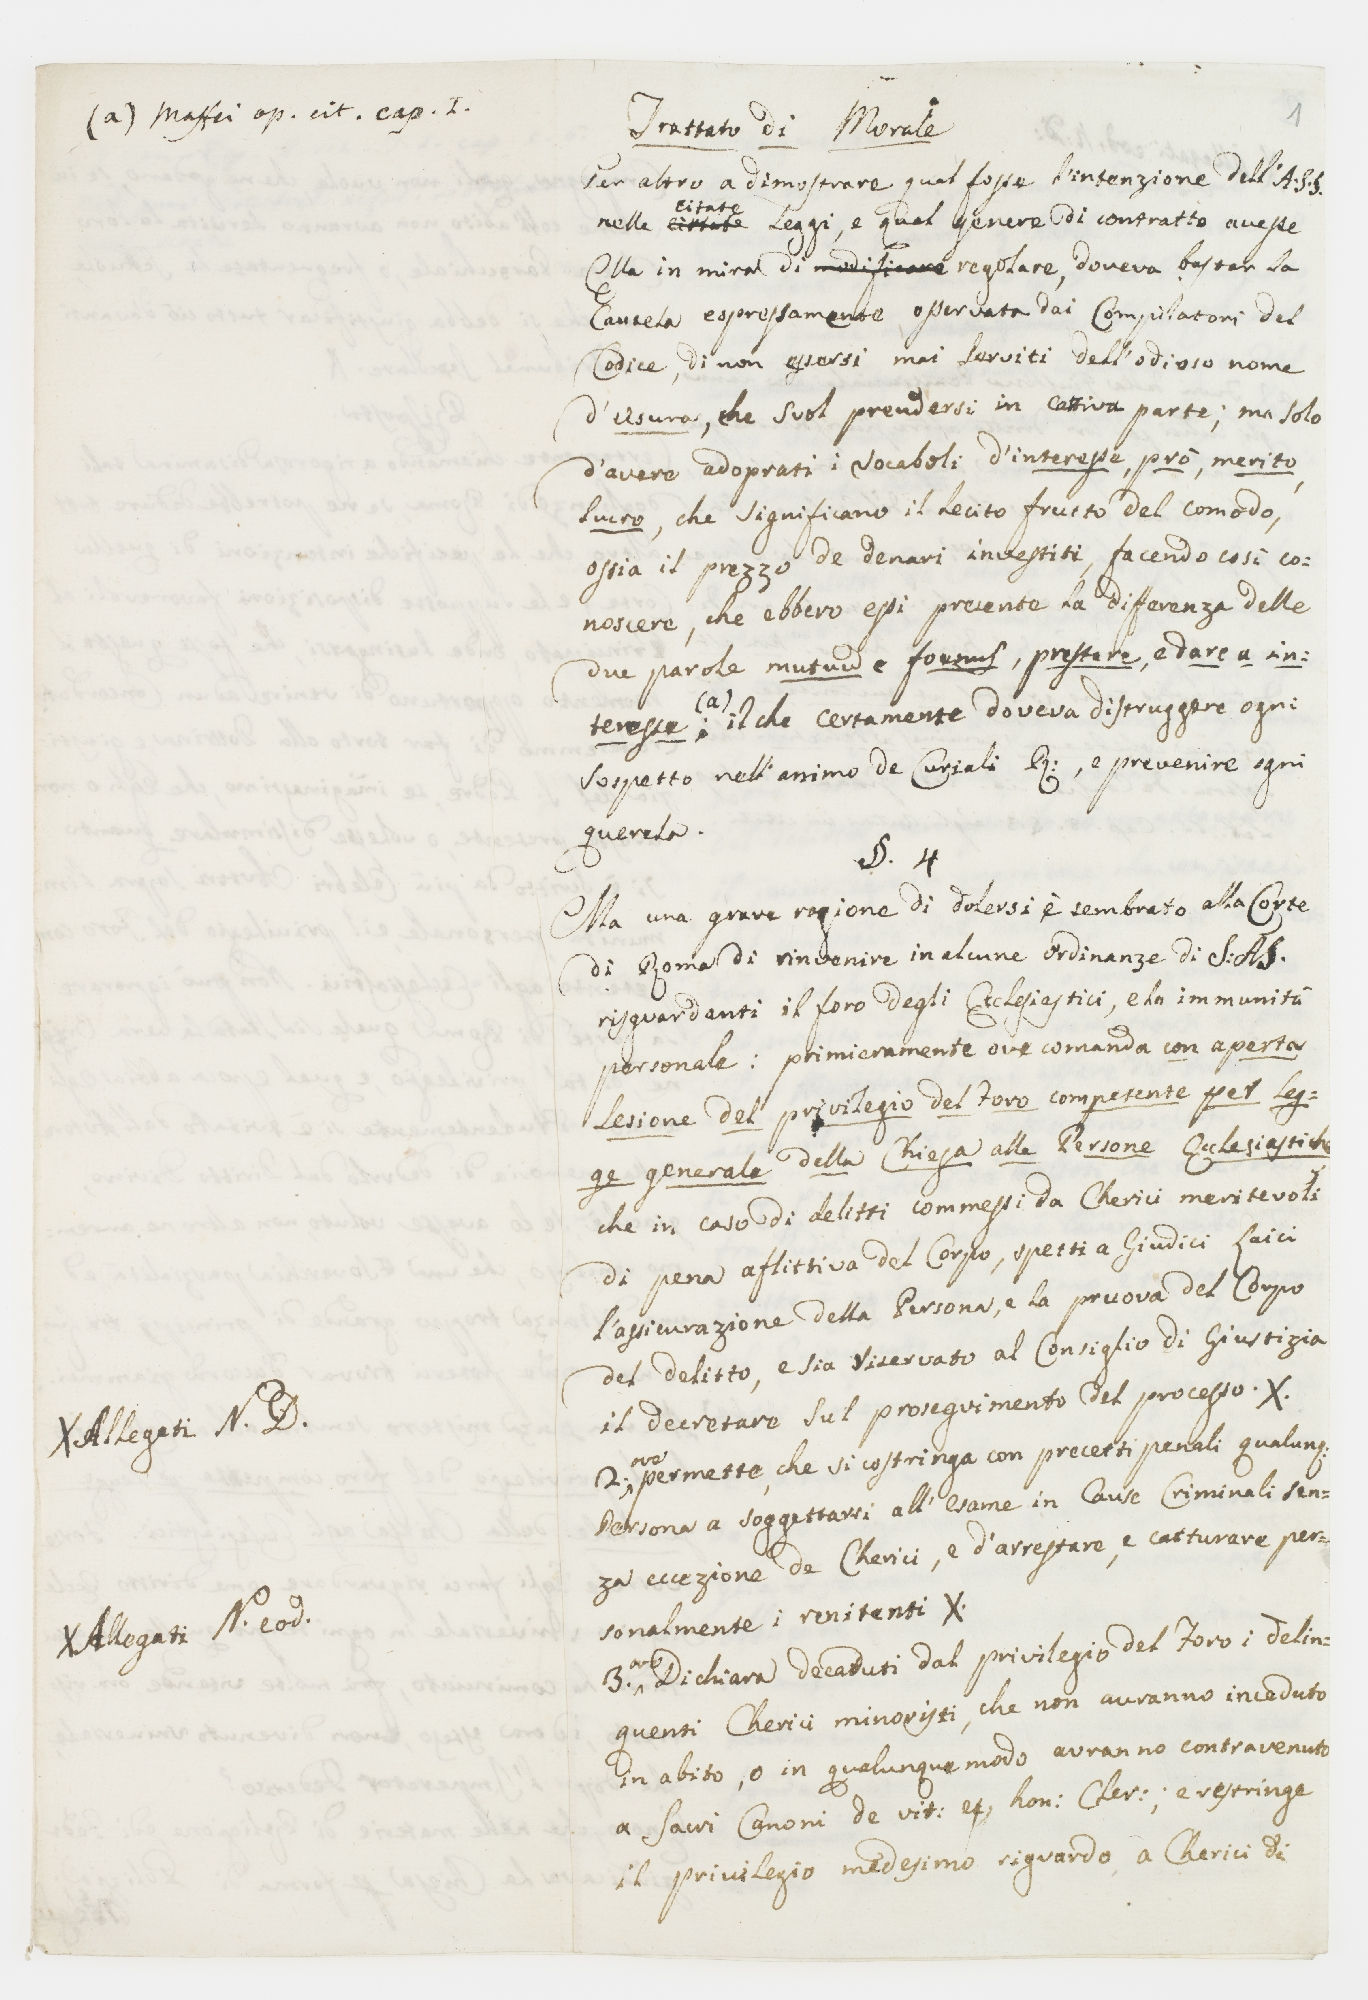 (a) Maffei op. cit. cap. I.
1
Trattato di Morale
Per altro a dimostrare qual fosse l'intenzione dell'A.S.S.
nelle citate Leggi, e qual genere di contratto avesse
Ella in mira di modificare regolare, doveva bastar la
Cautela espressamente osservata dai Compilatori del
Codice, di non essersi mai serviti dell'odioso nome
d'usura, che suol prendersi in cattiva parte; ma solo
d'avere adoprati i vocaboli d'interesse, prò, merito,
lucro, che significano il lecito frutto del comodo,
ossia il prezzo de denari investiti, facendo così co=
noscere, che ebbero essi presente la differenza delle
due parole mutuum e foenus, prestare, e dare a in=
teresse (a); il che certamente doveva distruggere ogni
sospetto nell'animo de Curiali R:, e prevenire ogni
querela.
§. 4
Ma una grave ragione di dolersi è sembrato alla Corte
di Roma di rinvenire in alcune ordinanze di S:A.S.
risguardanti il foro degli Ecclesiastici, e la immunità
personale: primieramente ove comanda con aperta
lesione del privilegio del Foro competente per leg=
ge generale della Chiesa alle Persone Ecclesiastiche
che in caso di delitti commessi da Cherici meritevoli
di pena aflittiva del Corpo, spetti a Giudici Laici
l'assicurazione della Persona, e la pruova del Corpo
del delitto, e sia riservato al Consiglio di Giustizia
il decretare sul proseguimento del processo. X.
X Allegati N. D.
2; ove permette, che si costringa con precetti penali qualunq:
Persona a soggettarsi all'esame in Cause Criminali sen=
za eccezione de Cherici, e d'arrestare, e catturare per=
sonalmente i renitenti X.
X Allegati N. eod.
3. ove Dichiara decaduti dal privilegio del Foro i delin=
quenti Cherici minoristi, che non avranno inceduto
in abito, o in qualunque modo avranno contravenuto
a Sacri Canoni de vit: et hon: Cler:; e restringe
il privilegio medesimo riguardo a Cherici di